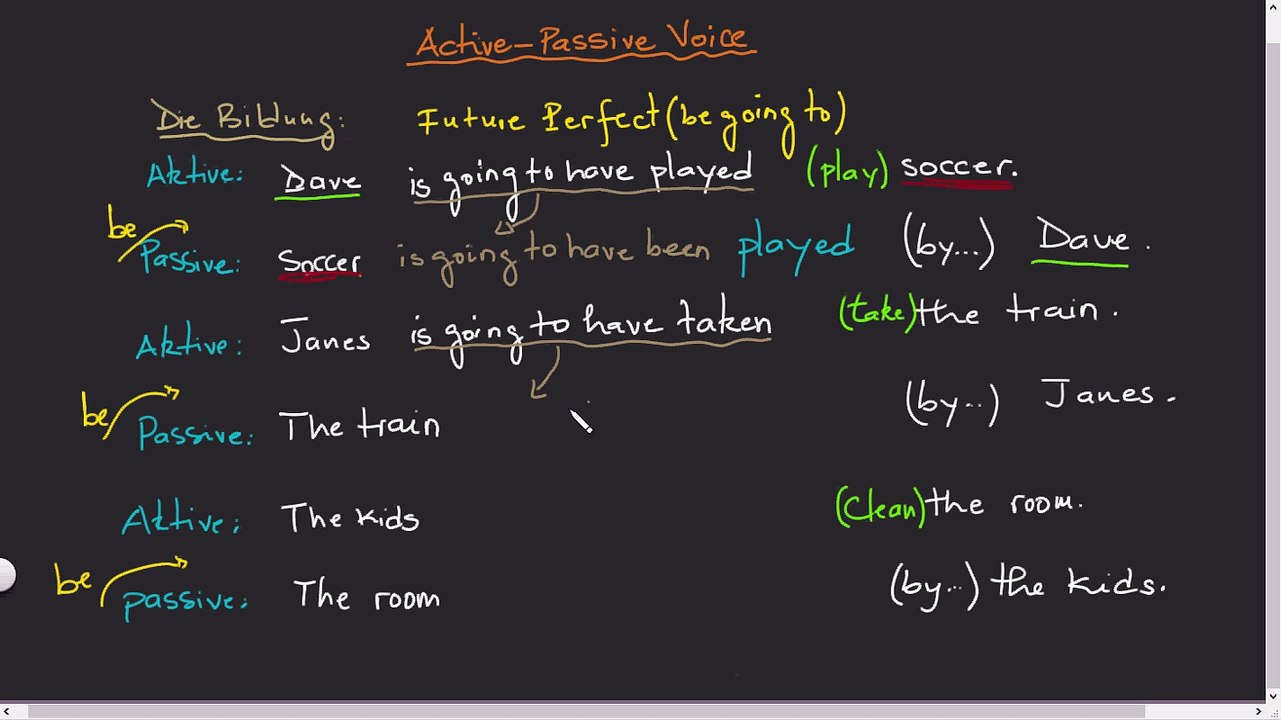 Active-Passive Voice
Die Bildung: Future Perfect (be going to)
Aktive: Dave is going to have played (play) soccer.
be
Passive: Soccer is going to have been played (by...) Dave.
Aktive: Janes is going to have taken (take) the train.
be
Passive: The train (by...) Janes.
Aktive: The kids (clean) the room.
be
passive: The room (by...) the kids.